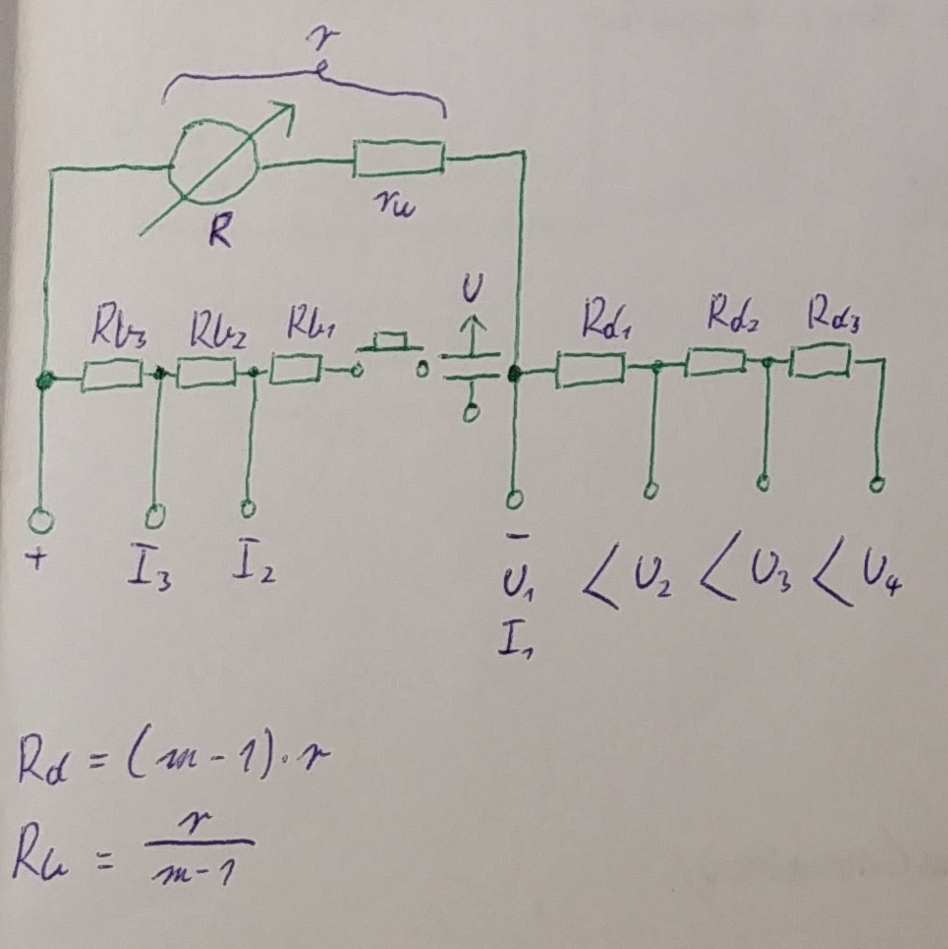 r
R
ru
U
Rb3 Rb2 Rb1 Rd1 Rd2 Rd3
+ I3 I2 - <U2 <U3 <U4
U1
I1
Rd = (m-1)·r
Rb = r/m-1